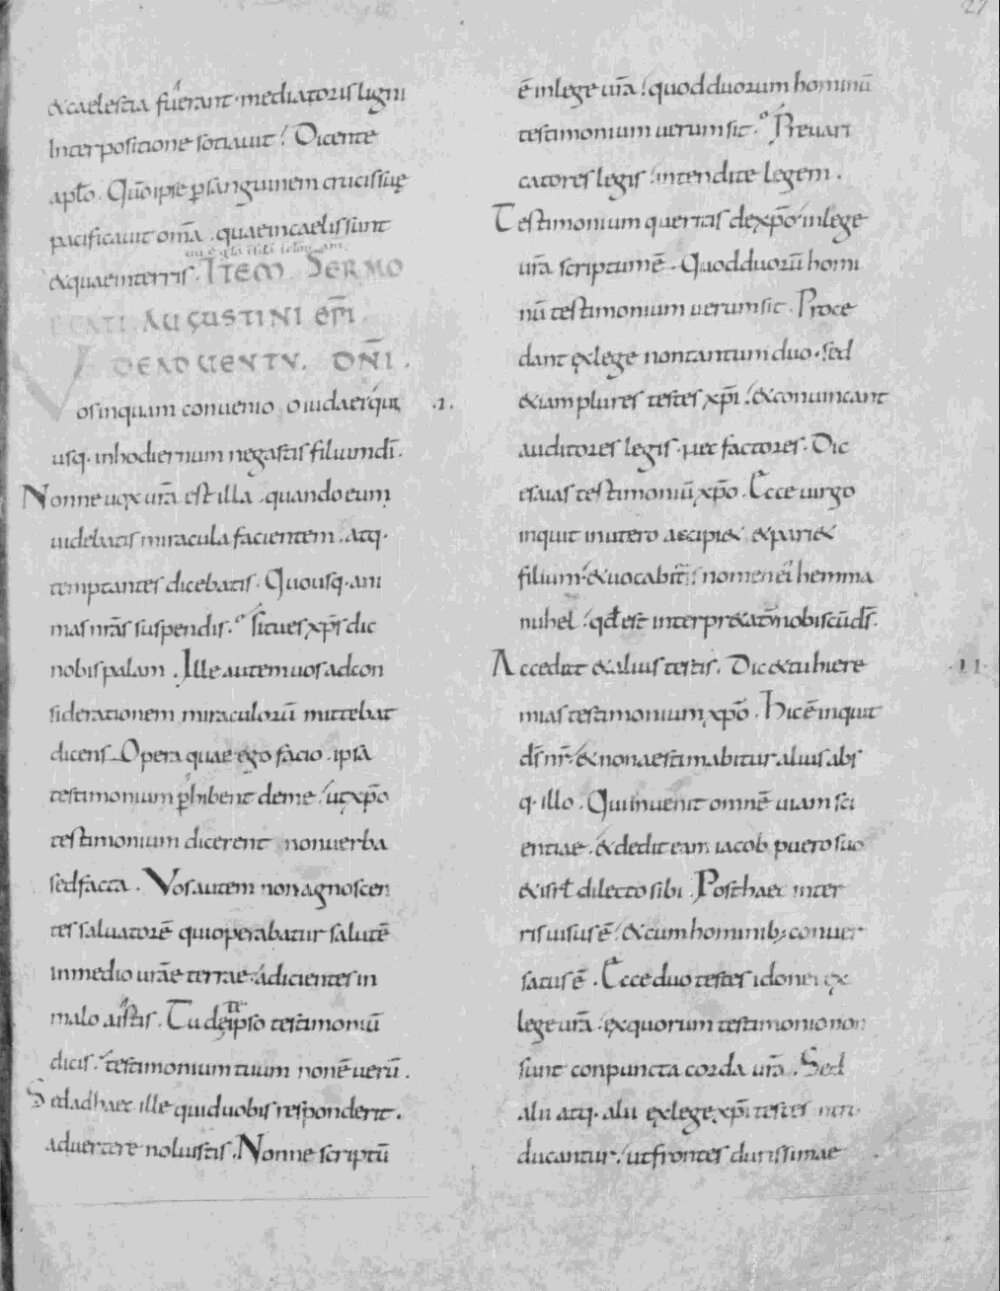 27
& caelestia fuerant · mediatoris ligni
Interpositione sotiauit . Dicente
apłō . Quō ipse p sanguinem crucis suę
pacificauit om̄a . quae in caelis sunt
& quae in terris . ITEM SERMO
BEATI AUGUSTINI EPĪ .
DE ADUENTU . DNĪ .
Vos inquam conuenio o iudaei qui
usq· in hodiernum negastis filium dī .
Nonne uox urā est illa . quando eum
uidebatis miracula facientem . atq·
temptantes dicebatis . Quousq· ani
mas nrās suspendis . si tu es xp̄s dic
nobis palam . Ille autem uos ad con
siderationem miraculorū mittebat
dicens . Opera quae ego facio . ipsa
testimonium phibent de me . ut xp̄o
testimonium dicerent non uerba
sed facta . Vos autem non agnoscen
tes saluatorē qui operabatur salutē
in medio urāe terrae . adicientes in
malo aistis . Tu de te ipso testimoniū
dicis . testimonium tuum non ē uerū .
Sed ad haec ille quid uobis responderit .
aduertere noluistis . Nonne scriptū
·I·
ē in lege urā . quod duorum hominū
testimonium uerum sit . Preuari
catores legis . intendite legem .
Testimonium queritis de xp̄o . in lege
urā scriptum ē . Quod duorū homi
nū testimonium uerum sit . Proce
dant ex lege non tantum duo . sed
&iam plures testes xp̄i . & conuincant
auditores legis . nec factores . Dic
esaias testimoniū xp̄o . Ecce uirgo
inquit in utero accipi& & pari&
filium . & uocabit̄ nomen ei hemma
nuhel . qđ est interpr&at̄ nobiscū dī .
Accedat & alius testis . Dic & tu hiere
mias testimonium xp̄o . Hic ē inquit
dī nī . & non aestimabitur alius abs
q· illo . Qui inuenit omnē uiam sci
entiae . & dedit eam iacob puero suo
& isrł dilecto sibi . Post haec in ter
ris uisus ē . & cum hominib; conuer
satus ē . Ecce duo testes idonei ex
lege urā . ex quorum testimonio non
sunt conpuncta corda urā . Sed
alii atq· alii ex lege xp̄i testes intro
ducantur . ut frontes durissimae
·II·